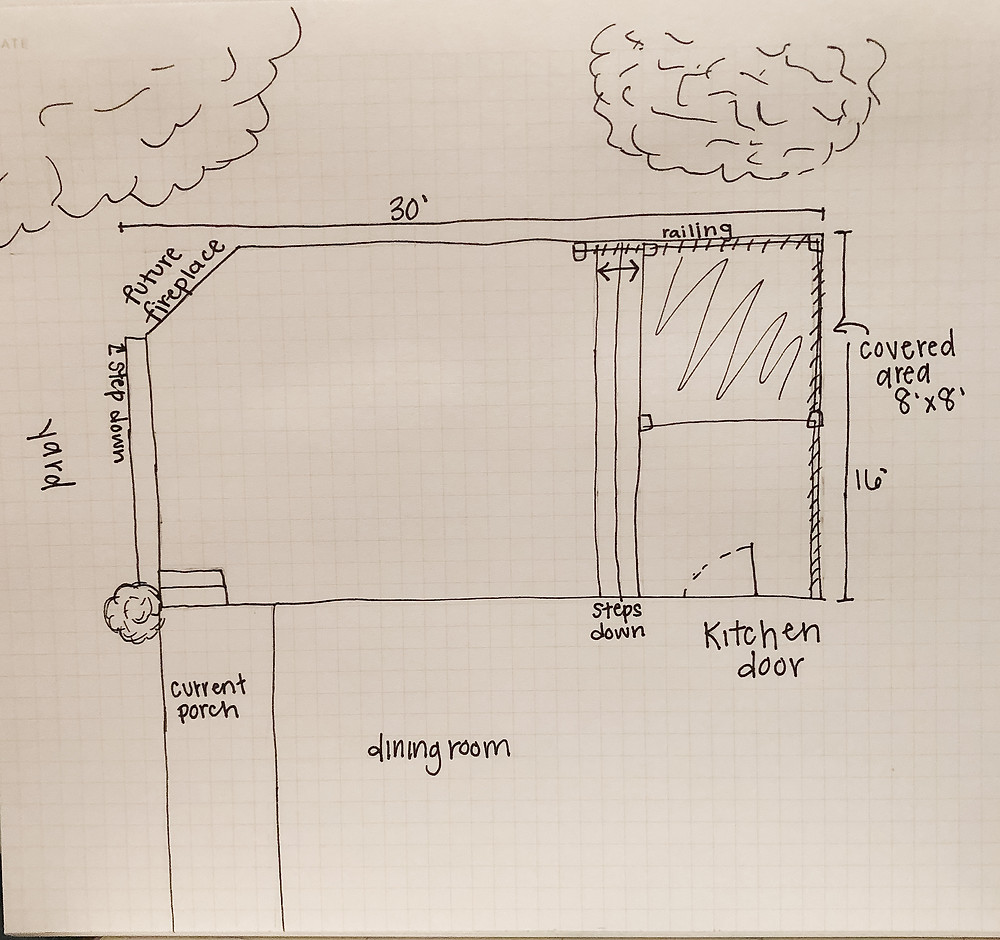 ATE
30'
railing
future
fireplace
covered
area
8'x8'
1 step down
yard
16'
steps
down
Kitchen
door
current
porch
dining room